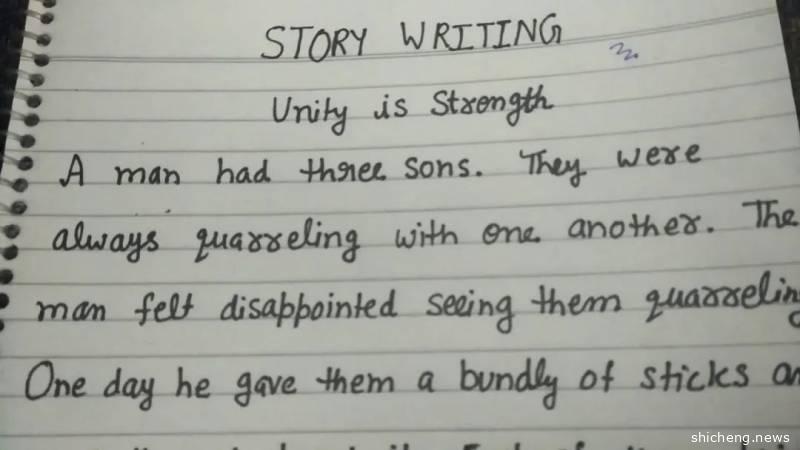 STORY WRITING
Unity is Strength
A man had three sons. They were
always quarreling with one another. The
man felt disappointed seeing them quarreling
One day he gave them a bundly of sticks an
shicheng.news